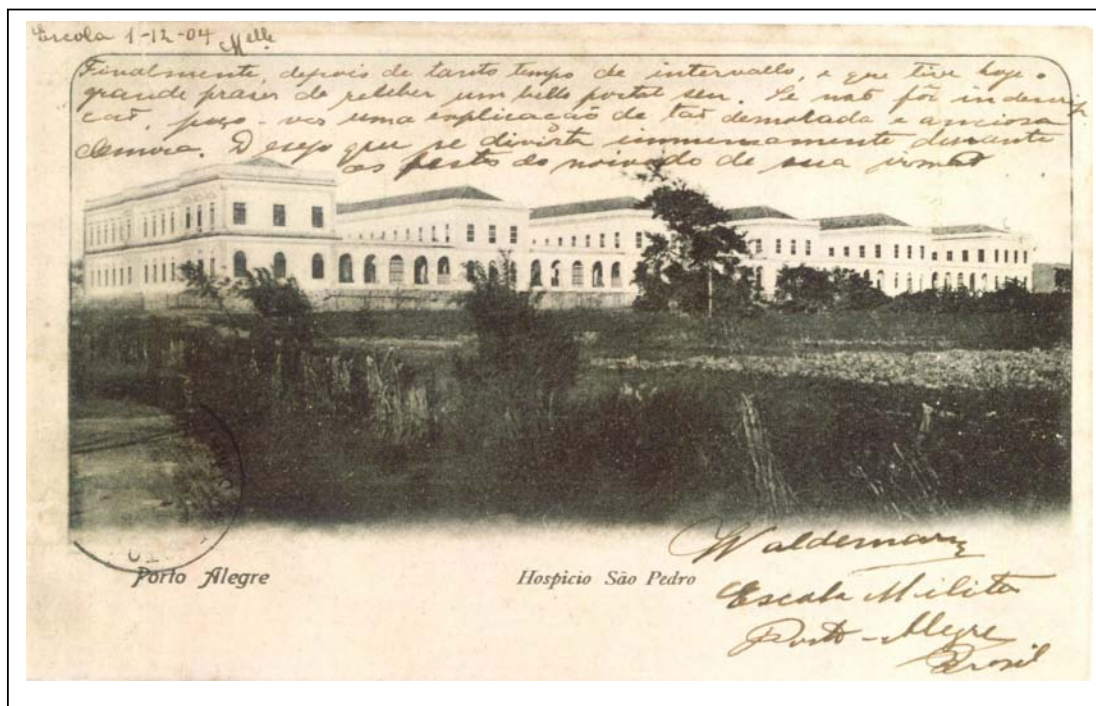 Escola 1-12-04 Melle
Finalmente, depois de tanto tempo de intervallo, é que tive hoje o
grande praser de receber um bello postal seu. Se não fôr indescrip
cão, peço-vos uma explicação de tão demorada e anciosa
demora. Desejo que se divirta immensamente durante
as festas do noivado de sua irmã
Waldemar
Porto Alegre
Hospicio São Pedro
Escola Militar
Porto-Alegre
Brasil